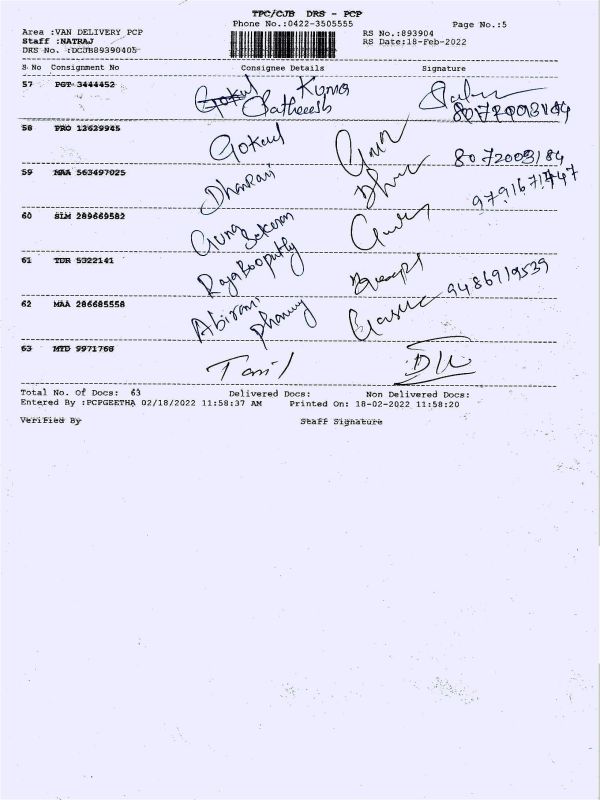 TPC/CJB DRS - PCP
Phone No.:0422-3505555
Page No.:5
Area :VAN DELIVERY PCP
RS No.:893904
Staff :NATRAJ
RS Date:18-Feb-2022
DRS No. :DCJB89390405
S No Consignment No Consignee Details Signature
57 PGT 3444452 Gokul Kumar
Satheesh
58 PRO 12629945 Gokul 8072003184
59 MAA 563497025 Dhanrani
60 SLM 289669582 Guna Sekaran
61 TDR 5322141 Raja Boopathy 9486919539
62 MAA 286685558 Abirami
63 MTD 9971768 Tamil
Total No. Of Docs: 63 Delivered Docs: Non Delivered Docs:
Entered By :PCPGEETHA 02/18/2022 11:58:37 AM Printed On: 18-02-2022 11:58:20
Verified By Staff Signature